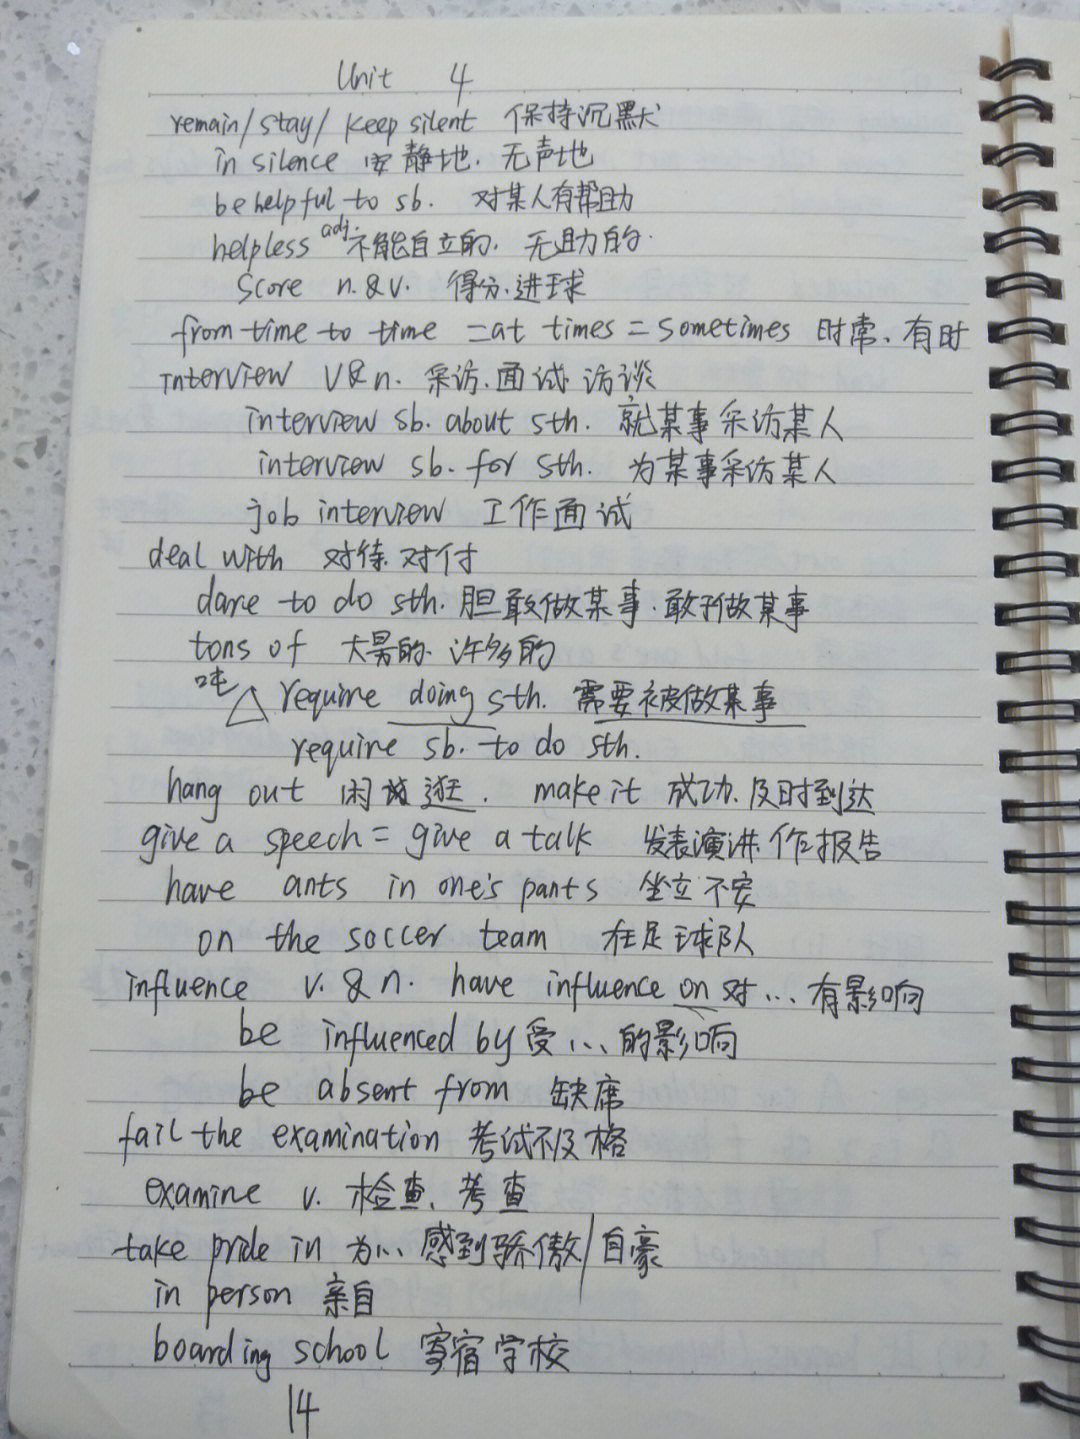 Unit 4
remain/stay/keep silent 保持沉默
in silence 安静地.无声地
be helpful to sb. 对某人有帮助
helpless adj. 不能自立的.无助的.
score n.&v. 得分.进球
from time to time =at times = sometimes 时常、有时
interview v&n. 采访.面试.访谈
interview sb. about sth. 就某事采访某人
interview sb. for sth. 为某事采访某人
job interview 工作面试
deal with 对待.对付
dare to do sth. 胆敢做某事.敢于做某事
tons of 大量的.许多的
吨 △ require doing sth. 需要被做某事
require sb. to do sth.
hang out 闲逛. make it 成功.及时到达
give a speech = give a talk 发表演讲.作报告
have ants in one's pants 坐立不安
on the soccer team 在足球队
influence v.&n. have influence on 对...有影响
be influenced by 受...的影响
be absent from 缺席
fail the examination 考试不及格
examine v. 检查、考查
take pride in 为...感到骄傲/自豪
in person 亲自
boarding school 寄宿学校
14